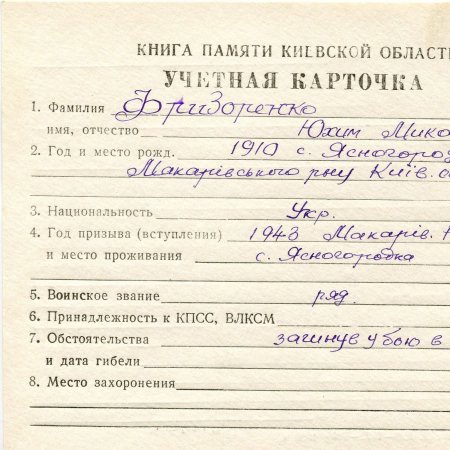 КНИГА ПАМЯТИ КИЕВСКОЙ ОБЛАСТ
УЧЕТНАЯ КАРТОЧКА
1. Фамилия Фризоренко
имя, отчество Юхим Мико
2. Год и место рожд. 1910 с. Ясногород
Макарівського р-ну Київ. о
3. Национальность Укр.
4. Год призыва (вступления) 1943 Макарів.
и место проживания с. Ясногородка
5. Воинское звание ряд.
6. Принадлежность к КПСС, ВЛКСМ
7. Обстоятельства загинув у бою в
и дата гибели
8. Место захоронения